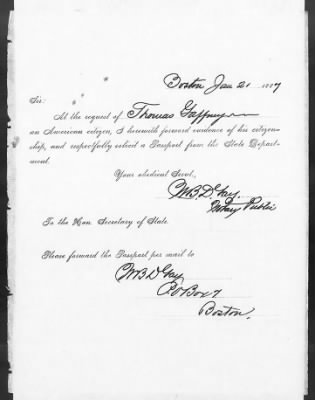 Boston Jan 21 1887
Sir:
At the request of Thomas Gaffney
an American citizen, I herewith forward evidence of his citizen-
ship, and respectfully solicit a Passport from the State Depart-
ment.
Your obedient Servt.
Notary Public
To the Hon. Secretary of State.
Please forward the Passport per mail to
P O Box 7
Boston.